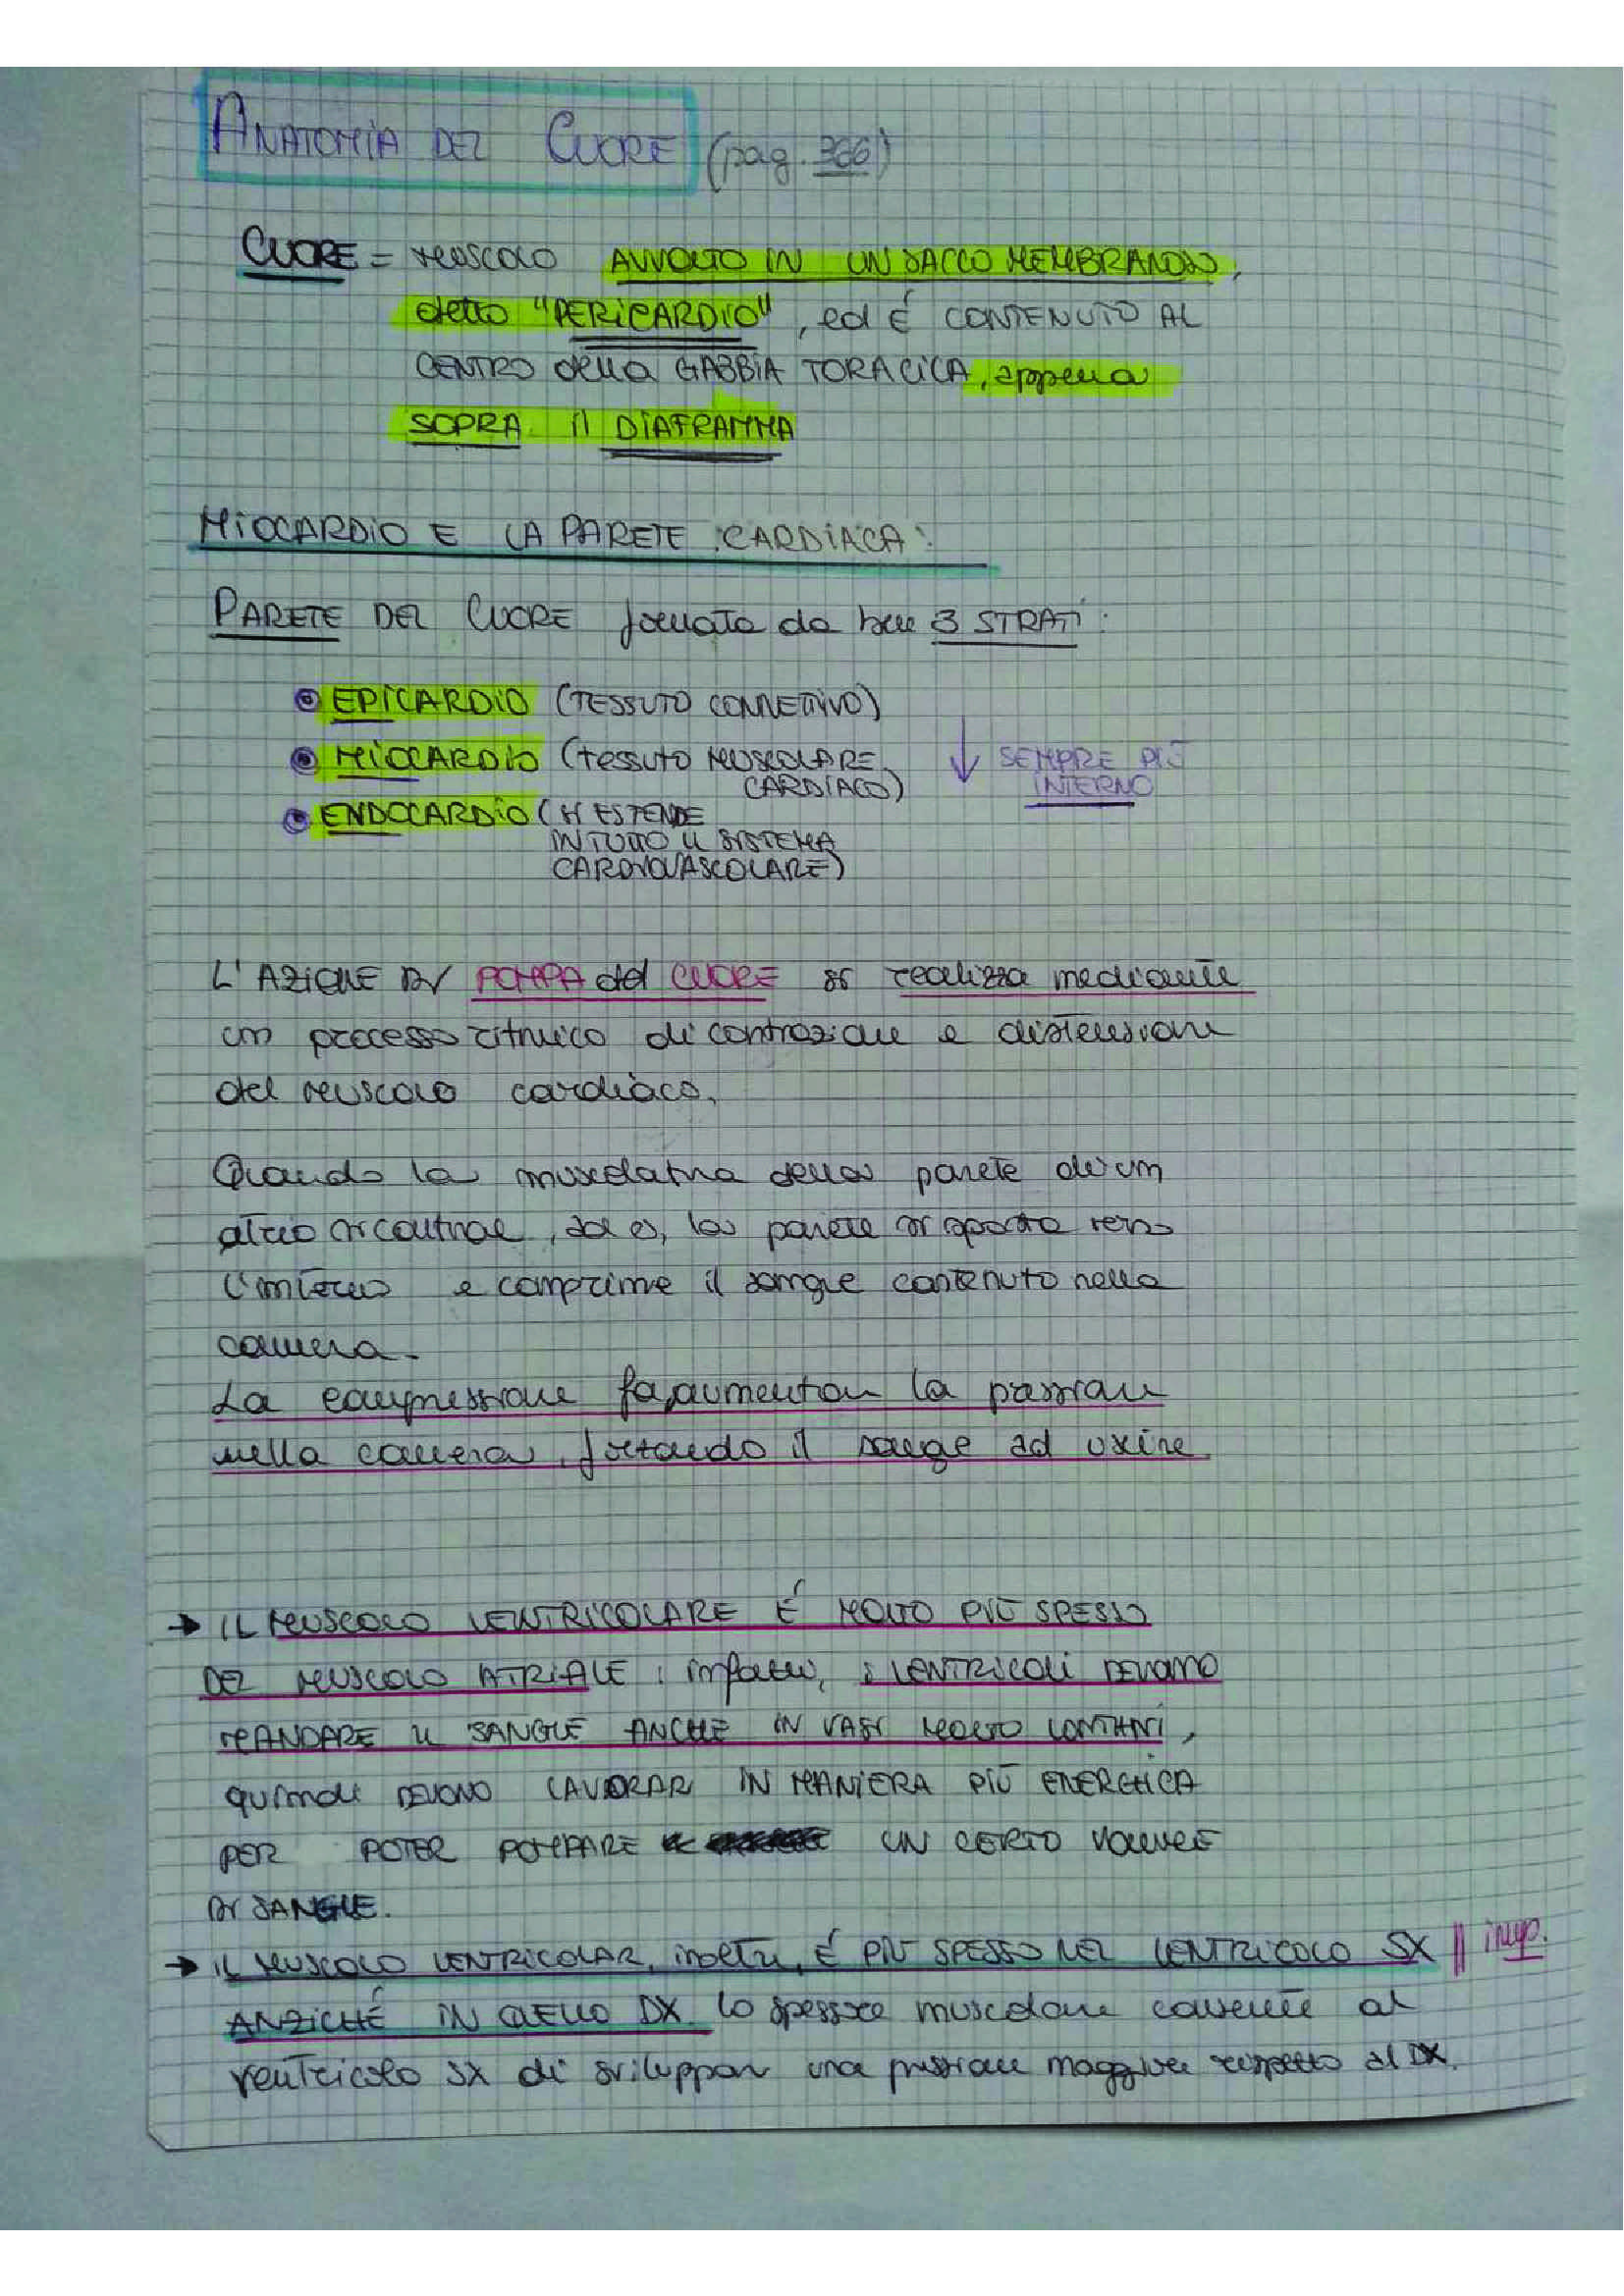 ANATOMIA DEL CUORE (pag. 366)
CUORE = MUSCOLO AVVOLTO IN UN SACCO MEMBRANOSO,
detto "PERICARDIO", ed É CONTENUTO AL
CENTRO della GABBIA TORACICA, appena
SOPRA il DIAFRAMMA
MIOCARDIO E LA PARETE CARDIACA:
PARETE DEL CUORE formata da ben 3 STRATI:
EPICARDIO (TESSUTO CONNETTIVO)
MIOCARDIO (tessuto MUSCOLARE
CARDIACO)
↓ SEMPRE PIÙ
INTERNO
ENDOCARDIO (SI ESTENDE
IN TUTTO IL SISTEMA
CARDIOVASCOLARE)
L'AZIONE DI POMPA del CUORE si realizza mediante
un processo ritmico di contrazione e distensione
del muscolo cardiaco.
Quando la muscolatura della parete di un
atrio si contrae, la parete si sposta verso
l'interno e comprime il sangue contenuto nella
camera.
La compressione fa aumentare la pressione
nella camera, forzando il sangue ad uscire
→ IL MUSCOLO VENTRICOLARE É MOLTO PIÙ SPESSO
DEL MUSCOLO ATRIALE: infatti, i VENTRICOLI DEVONO
MANDARE IL SANGUE ANCHE IN VASI MOLTO LONTANI,
quindi DEVONO LAVORARE IN MANIERA PIÙ ENERGICA
PER POTER POMPARE UN CERTO VOLUME
DI SANGUE.
→ IL MUSCOLO VENTRICOLARE, inoltre, É PIÙ SPESSO NEL VENTRICOLO SX || imp.
ANZICHÉ IN QUELLO DX. Lo spessore muscolare consente al
ventricolo SX di sviluppare una pressione maggiore rispetto al DX.